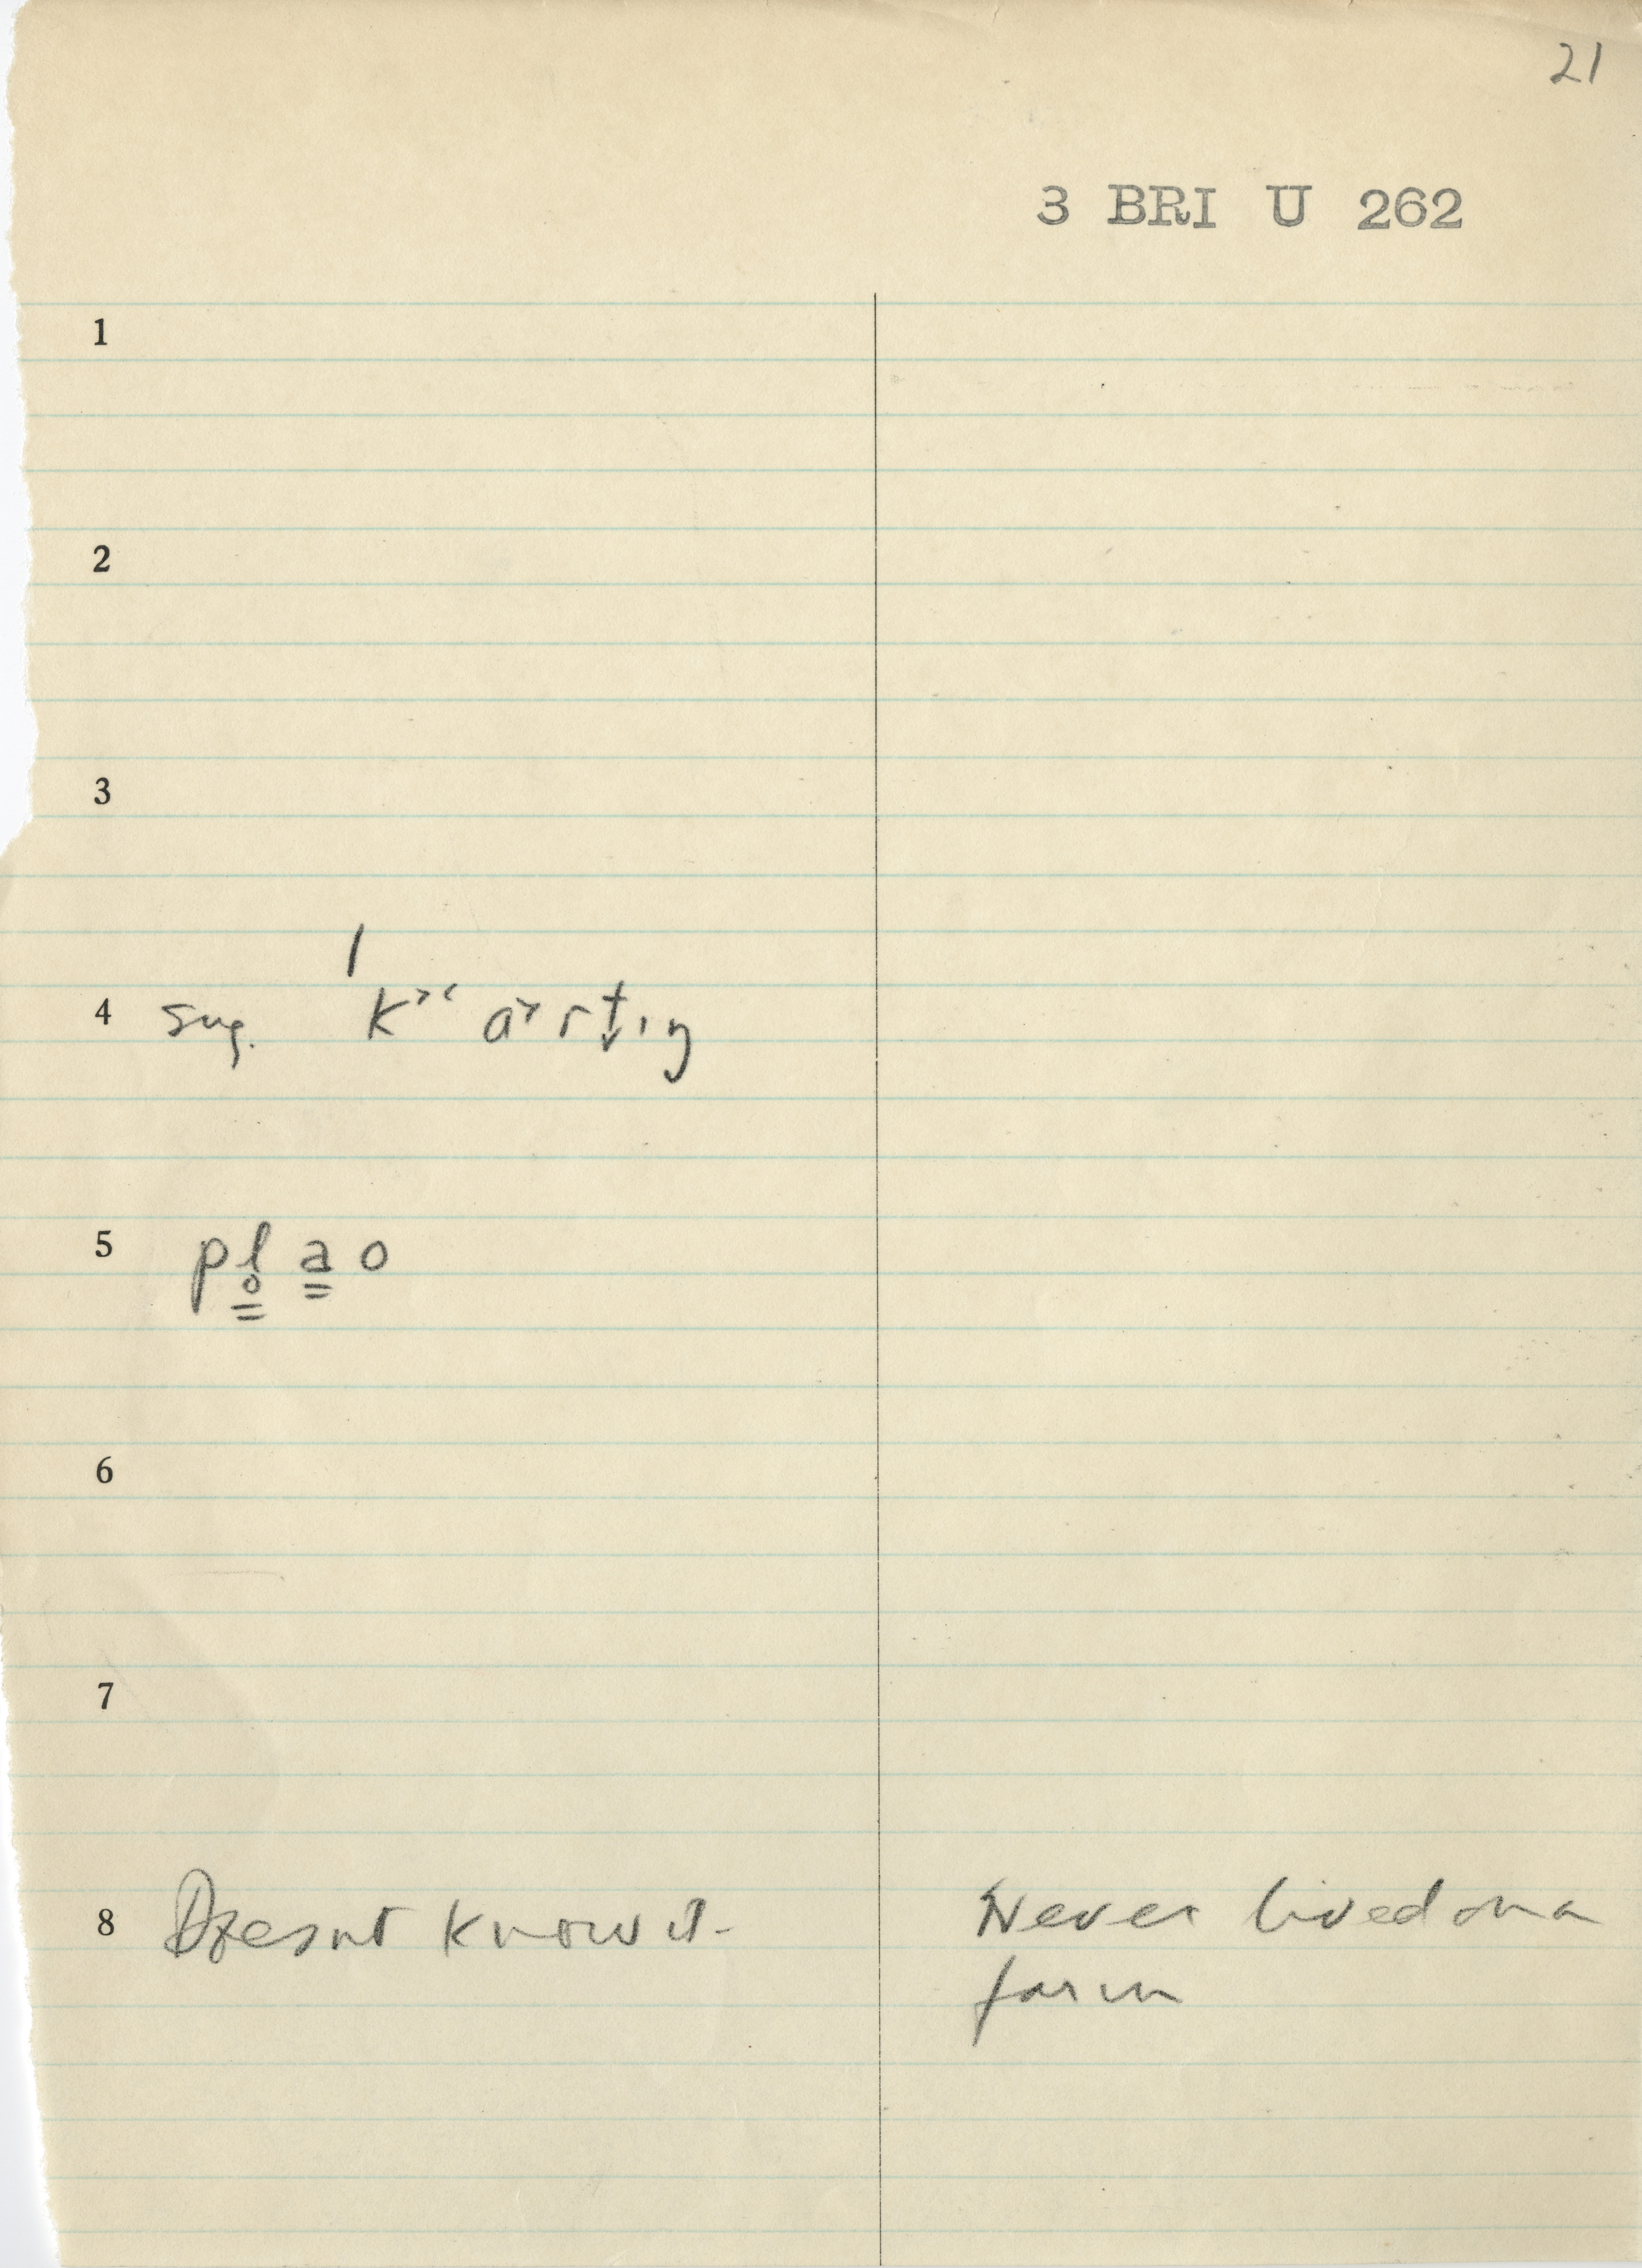 21
3 BRI U 262
1
2
3
4 sug. ˈk˃˂ a˃ r t̬ ɪ ŋ
5 p l̥ a o
6
7
8 Doesnt know it- Never lived on a
farm